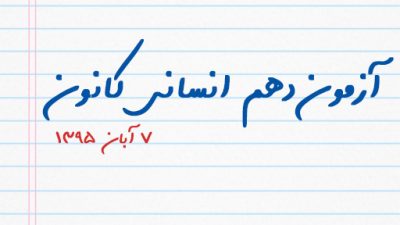 آزمون دهم انسانی کانون
۷ آبان ۱۳۹۵